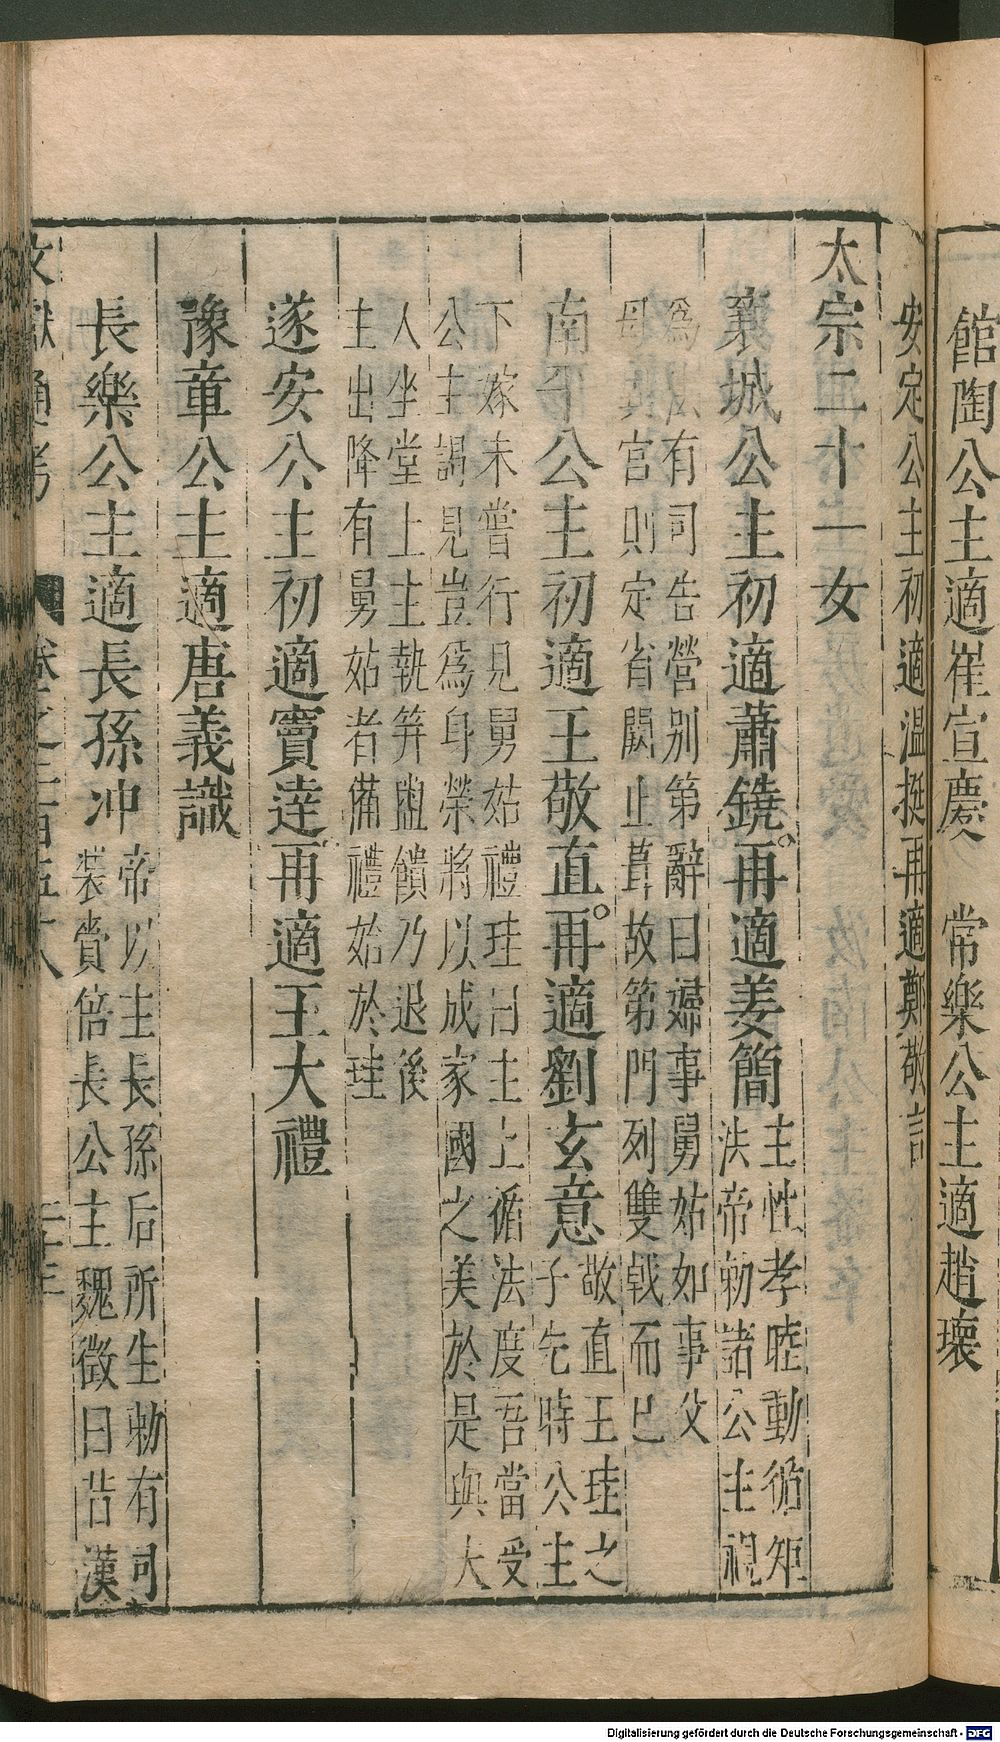 館陶公主適崔宣慶　常樂公主適趙瓌
安定公主初適温挺再適鄭敬
太宗二十一女
襄城公主初適蕭鋭。再適姜簡主性孝睦動循矩
法帝勑諸公主視
爲法有司告營别第辭曰婦事舅姑如事父
母異宫則定省闕止葺故第門列雙戟而已
南平公主初適王敬直。再適劉玄意敬直王珪之
子先時公主
下嫁未嘗行見舅姑禮珪曰主上循法度吾當受
公主謁見豈爲身榮將以成家國之美於是與夫
人坐堂上主執笲盥饋乃退後
主出降有舅姑者備禮始於珪
遂安公主初適竇逵再適王大禮
豫章公主適唐義識
長樂公主適長孫冲帝以主長孫后所生勑有司
裝賫倍長公主魏徵曰昔漢
文獻通考　卷之二百五十八　二十三
Digitalisierung gefördert durch die Deutsche Forschungsgemeinschaft - DFG